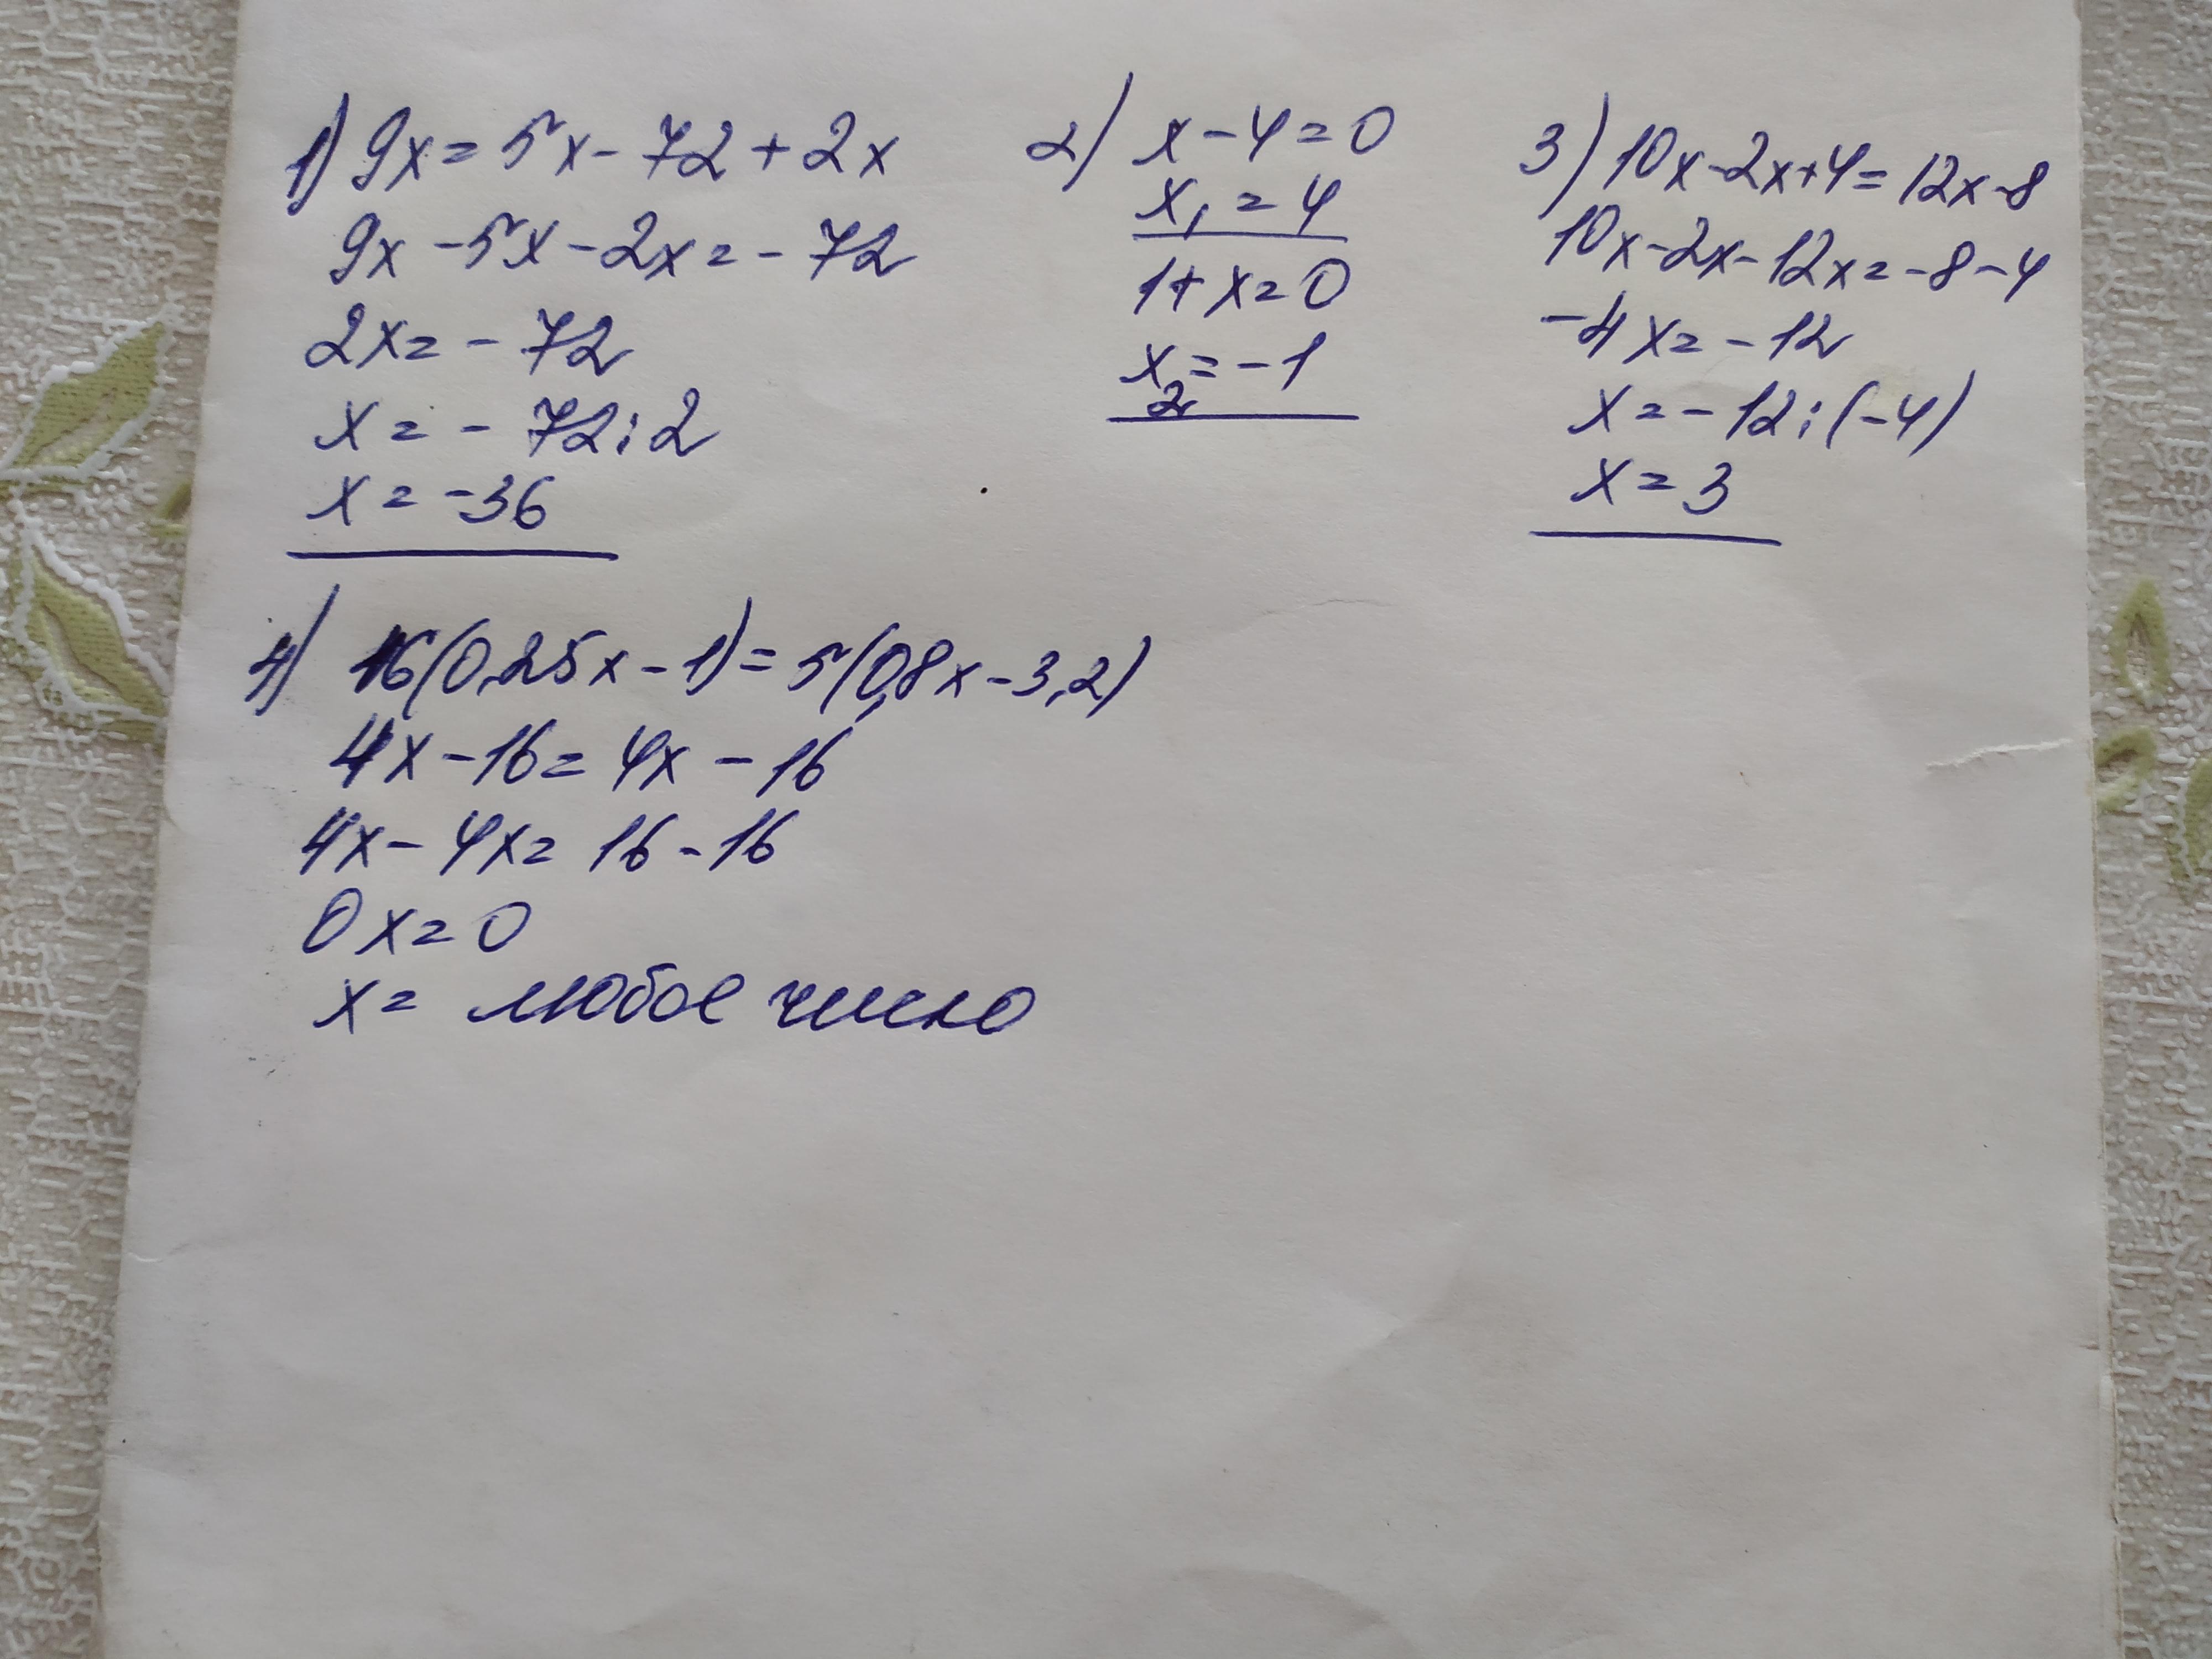 1) 9x = 5x - 72 + 2x
9x - 5x - 2x = - 72
2x = - 72
x = - 72 : 2
x = -36
2) x - 4 = 0
x₁ = 4
1 + x = 0
x₂ = - 1
3) 10x - 2x + 4 = 12x - 8
10x - 2x - 12x = - 8 - 4
-4x = - 12
x = - 12 : (-4)
x = 3
4) 16(0,25x - 1) = 5(0,8x - 3,2)
4x - 16 = 4x - 16
4x - 4x = 16 - 16
0x = 0
x = любое число